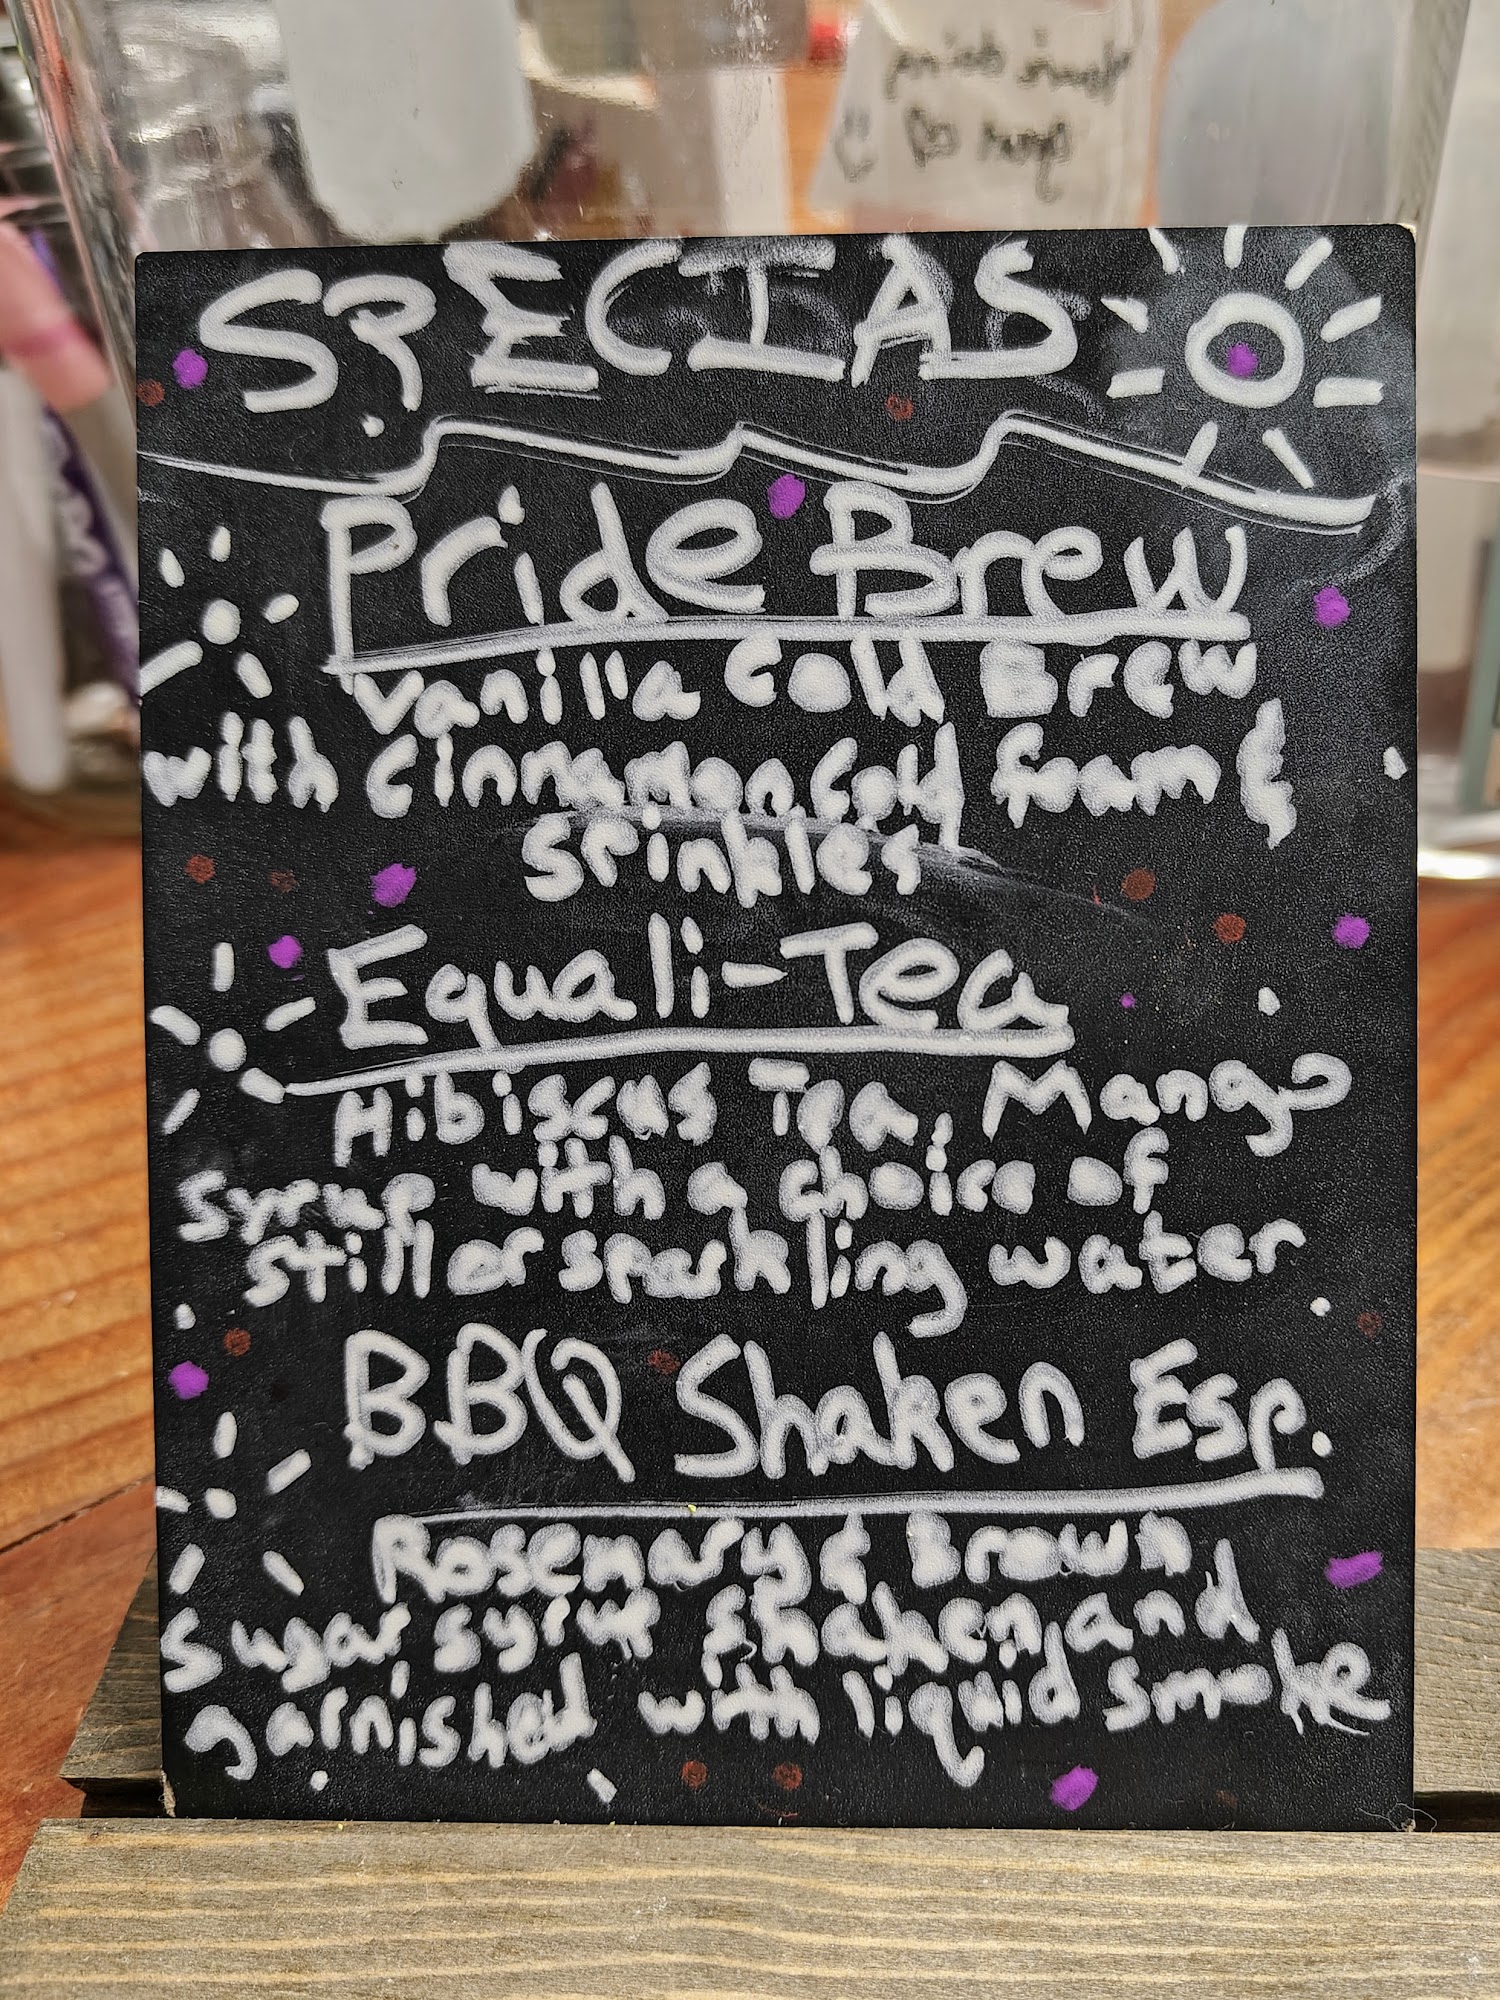 SPECIAS
Pride Brew
Vanilla Cold Brew
with Cinnamon Cold foam &
Sprinkles
Equali-Tea
Hibiscus Tea, Mango
Syrup with a choice of
still or sparkling water
BBQ Shaken Esp.
Rosemary & Brown
Sugar syrup shaken, and
garnished with liquid smoke